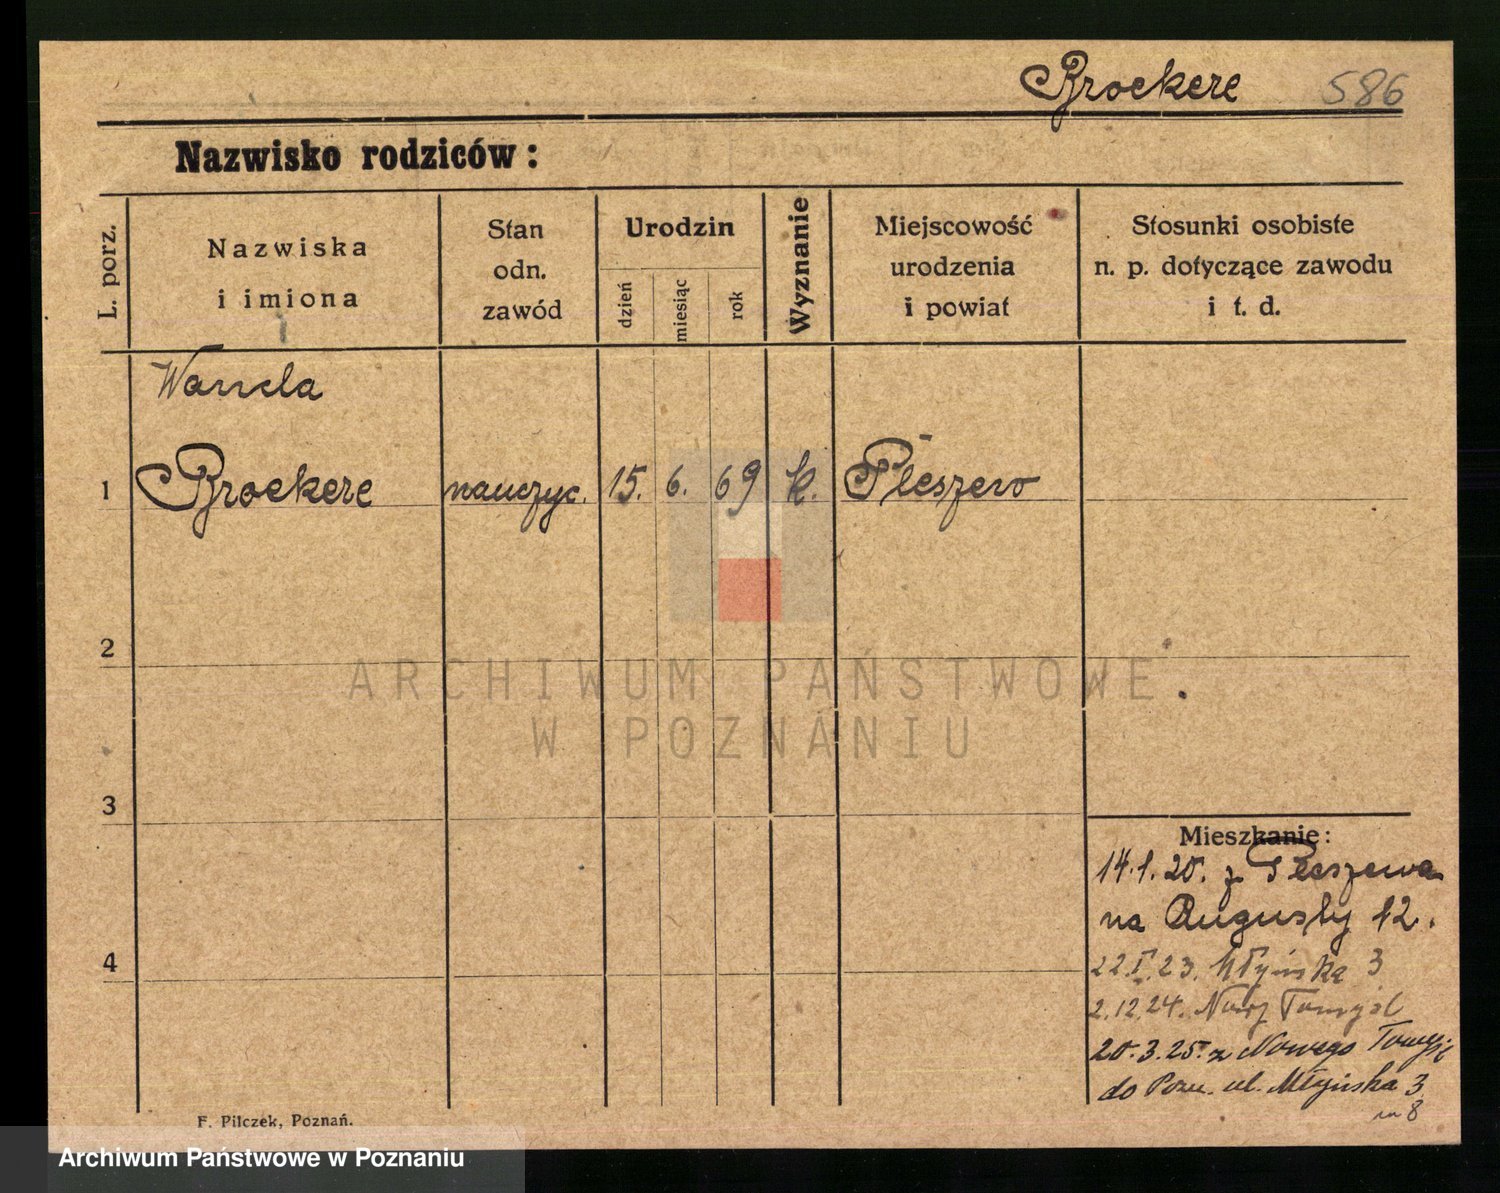 Brockere 586
Nazwisko rodziców:
L. porz.
Nazwiska
i imiona
Stan
odn.
zawód
Urodzin
dzień
miesiąc
rok
Wyznanie
Miejscowość
urodzenia
i powiat
Stosunki osobiste
n. p. dotyczące zawodu
i t. d.
Wanda
1 Brockere nauczyc. 15. 6. 69 k. Pleszew
2
3
4
Mieszkanie:
14.1.20. z Pleszewa
na Augusty 12.
22.I.23. Młyńska 3
2.12.24. Nowy Tomyśl
20.3.25. z Nowego Tomyśl
do Pozn. ul. Młyńska 3
m 8
F. Pilczek, Poznań.
ARCHIWUM PAŃSTWOWE
W POZNANIU
Archiwum Państwowe w Poznaniu